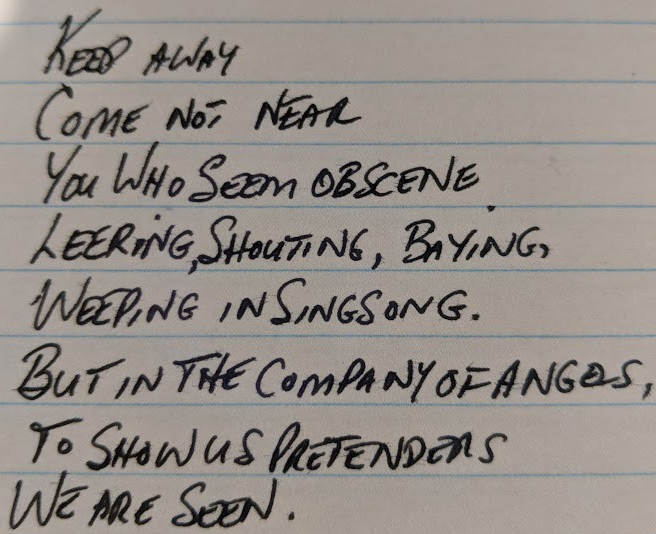 Keep away
Come not near
You who seem obscene
Leering, shouting, baying,
Weeping in singsong.
But in the company of angels,
To show us pretenders
We are seen.